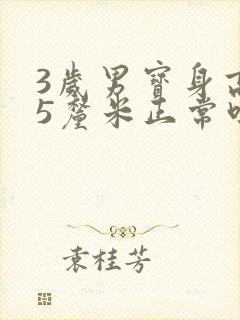 3歲男寶身高
5釐米正常
袁桂芳